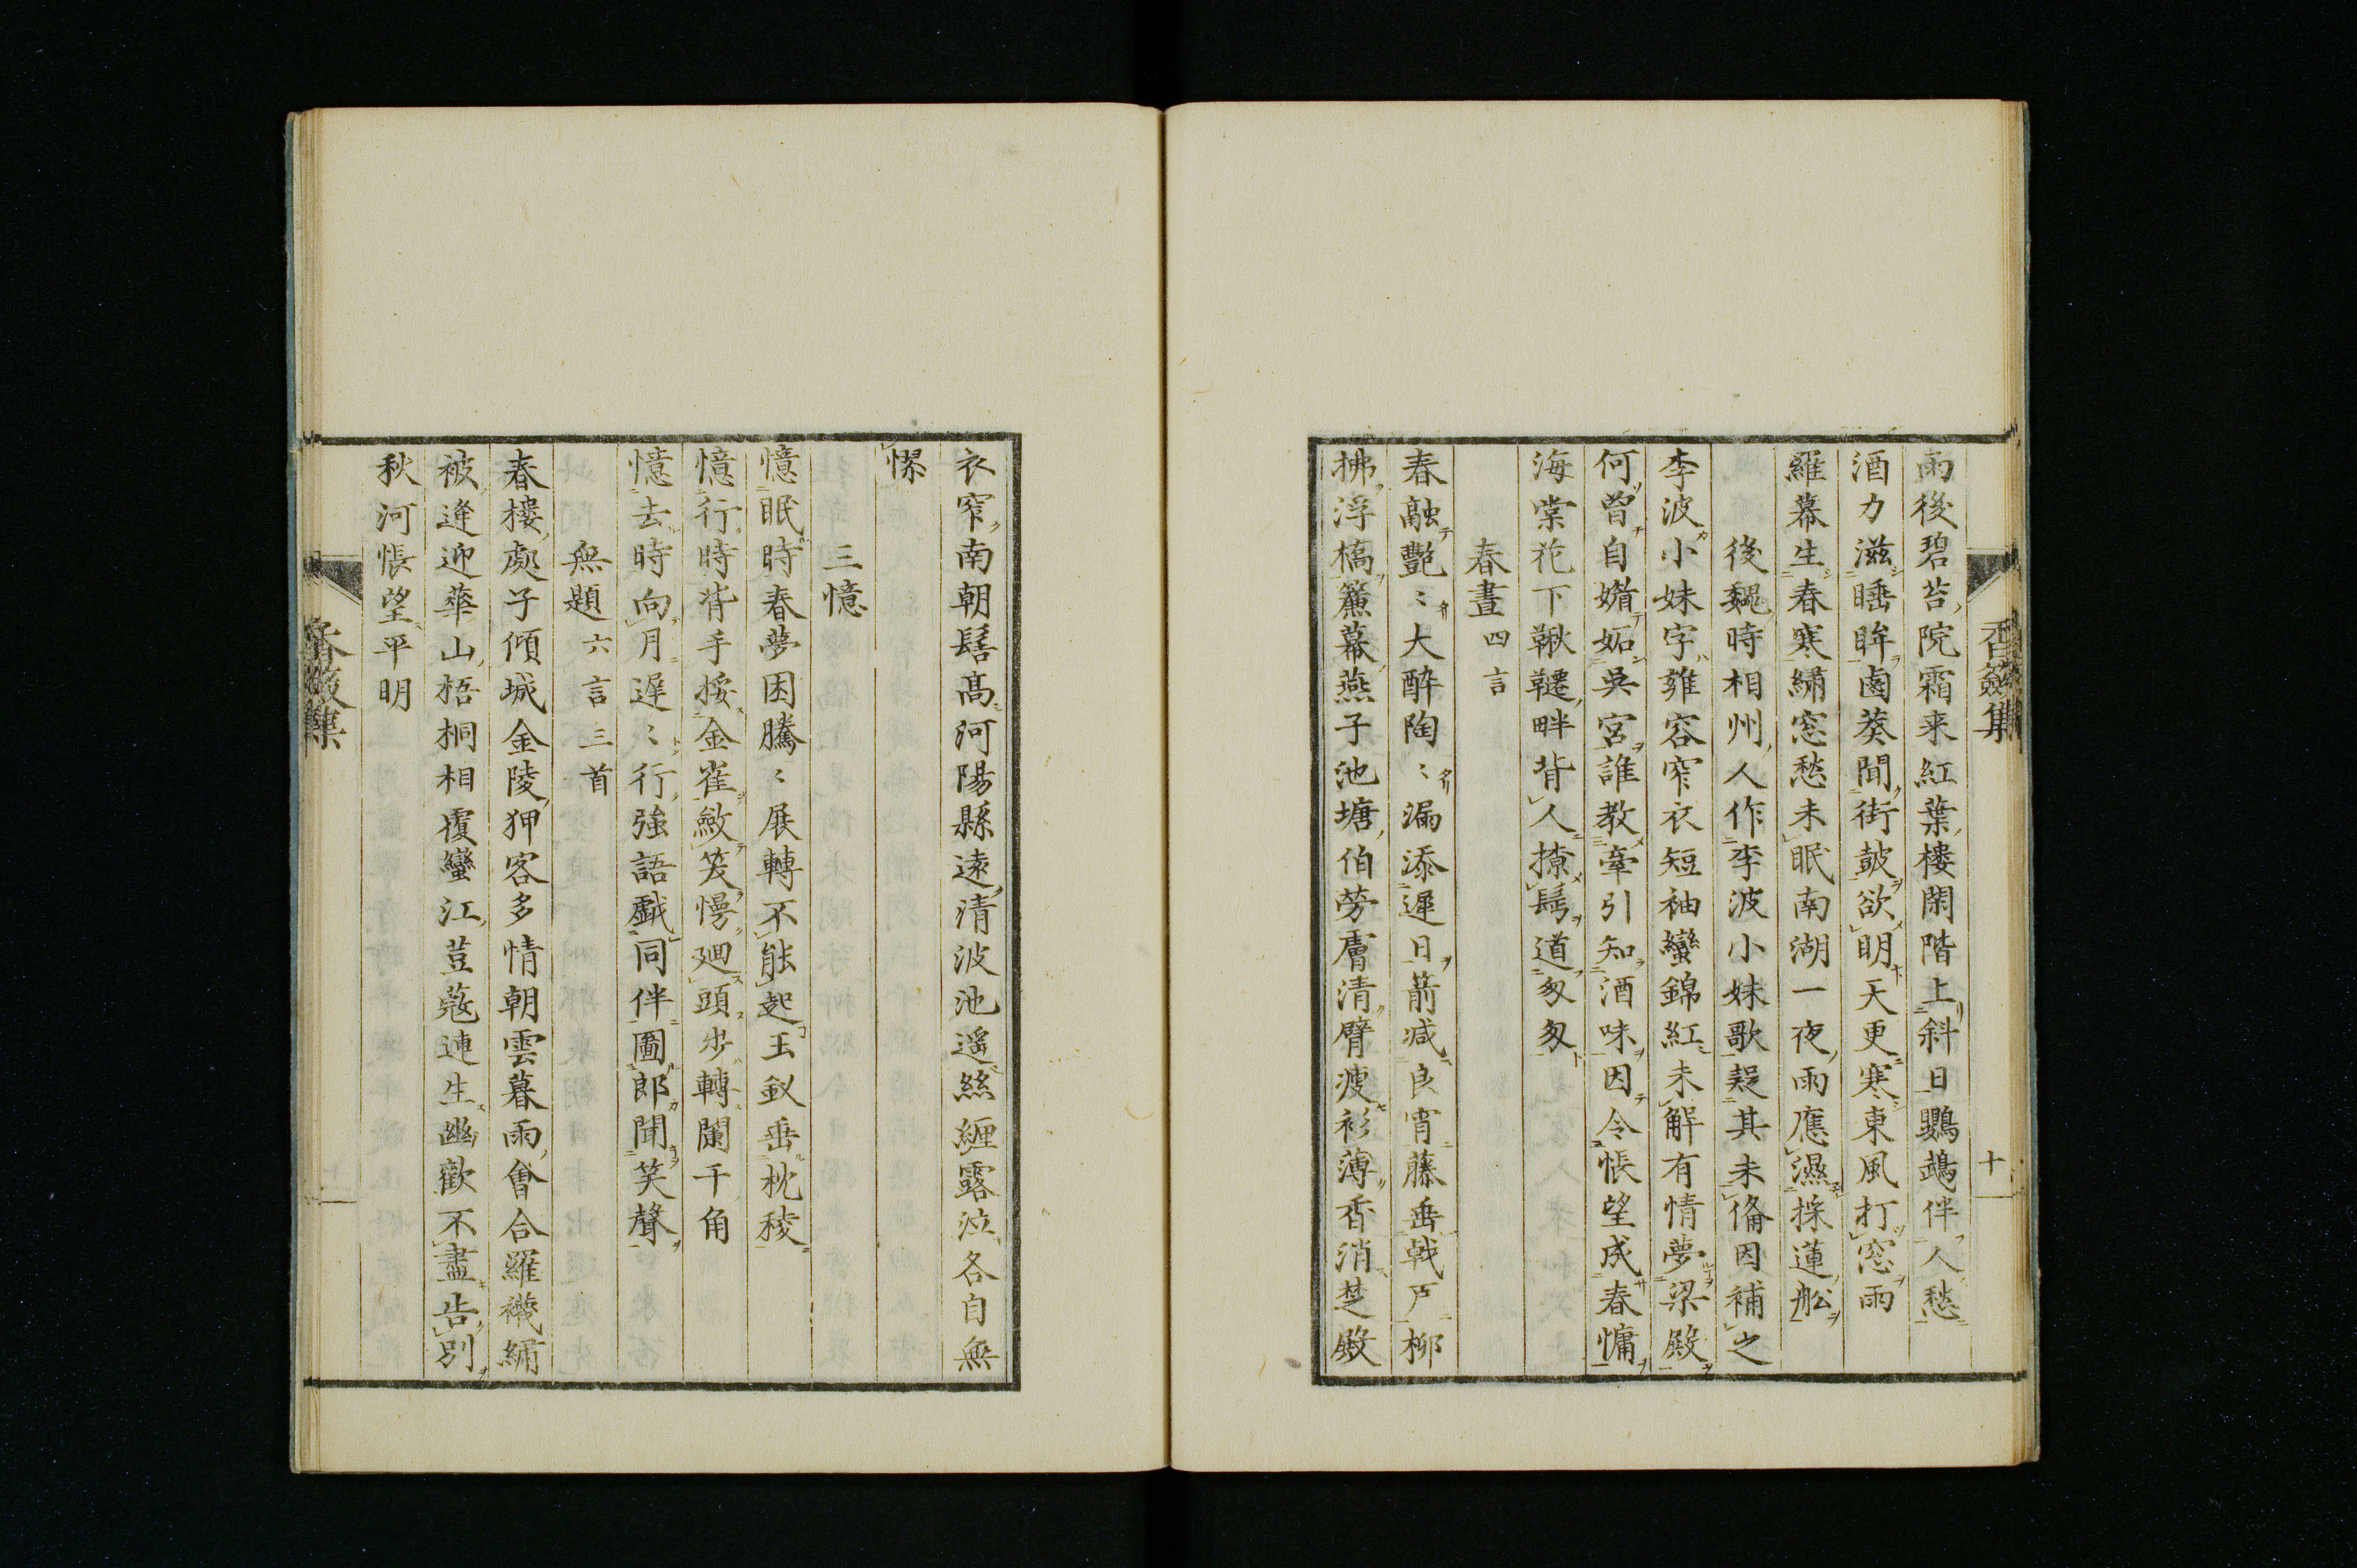 香奩集
十
雨後碧苔院霜来紅葉樓閑階上斜日鸚鵡伴人愁
酒力滋睡眸鹵莽聞街皷欲明天更寒東風打窓雨
羅幕生春寒繡窓愁未眠南湖一夜雨應濕採蓮舩
後魏時相州人作李波小妹歌疑其未俻因補之
李波小妹字雍容窄衣短袖蠻錦紅未解有情夢梁殿
何曾自媚妬吳宮誰教牽引知酒味因令悵望成春慵
海棠花下鞦韆畔背人撩鬂道匆匆
春晝四言
春融艷〻大醉陶〻漏添遲日箭减良宵藤垂戟戸柳
拂浮橋簾幕燕子池塘伯勞膚清臂瘦衫薄香消楚殿
衣窄南朝髻髙河陽縣逺清波池遥絲纏露泣各自無
憀
三憶
憶眠時春夢困騰〻展轉不能起玉釵垂枕稜
憶行時背手挼金雀斂笑慢廻頭步轉闌干角
憶去時向月遲〻行強語戯同伴圖郎聞笑聲
無題六言三首
春樓處子傾城金陵狎客多情朝雲暮雨會合羅襪繡
被逢迎華山梧桐相覆蠻江荳蔻連生幽歡不盡告別
秋河悵望平明
香奩集